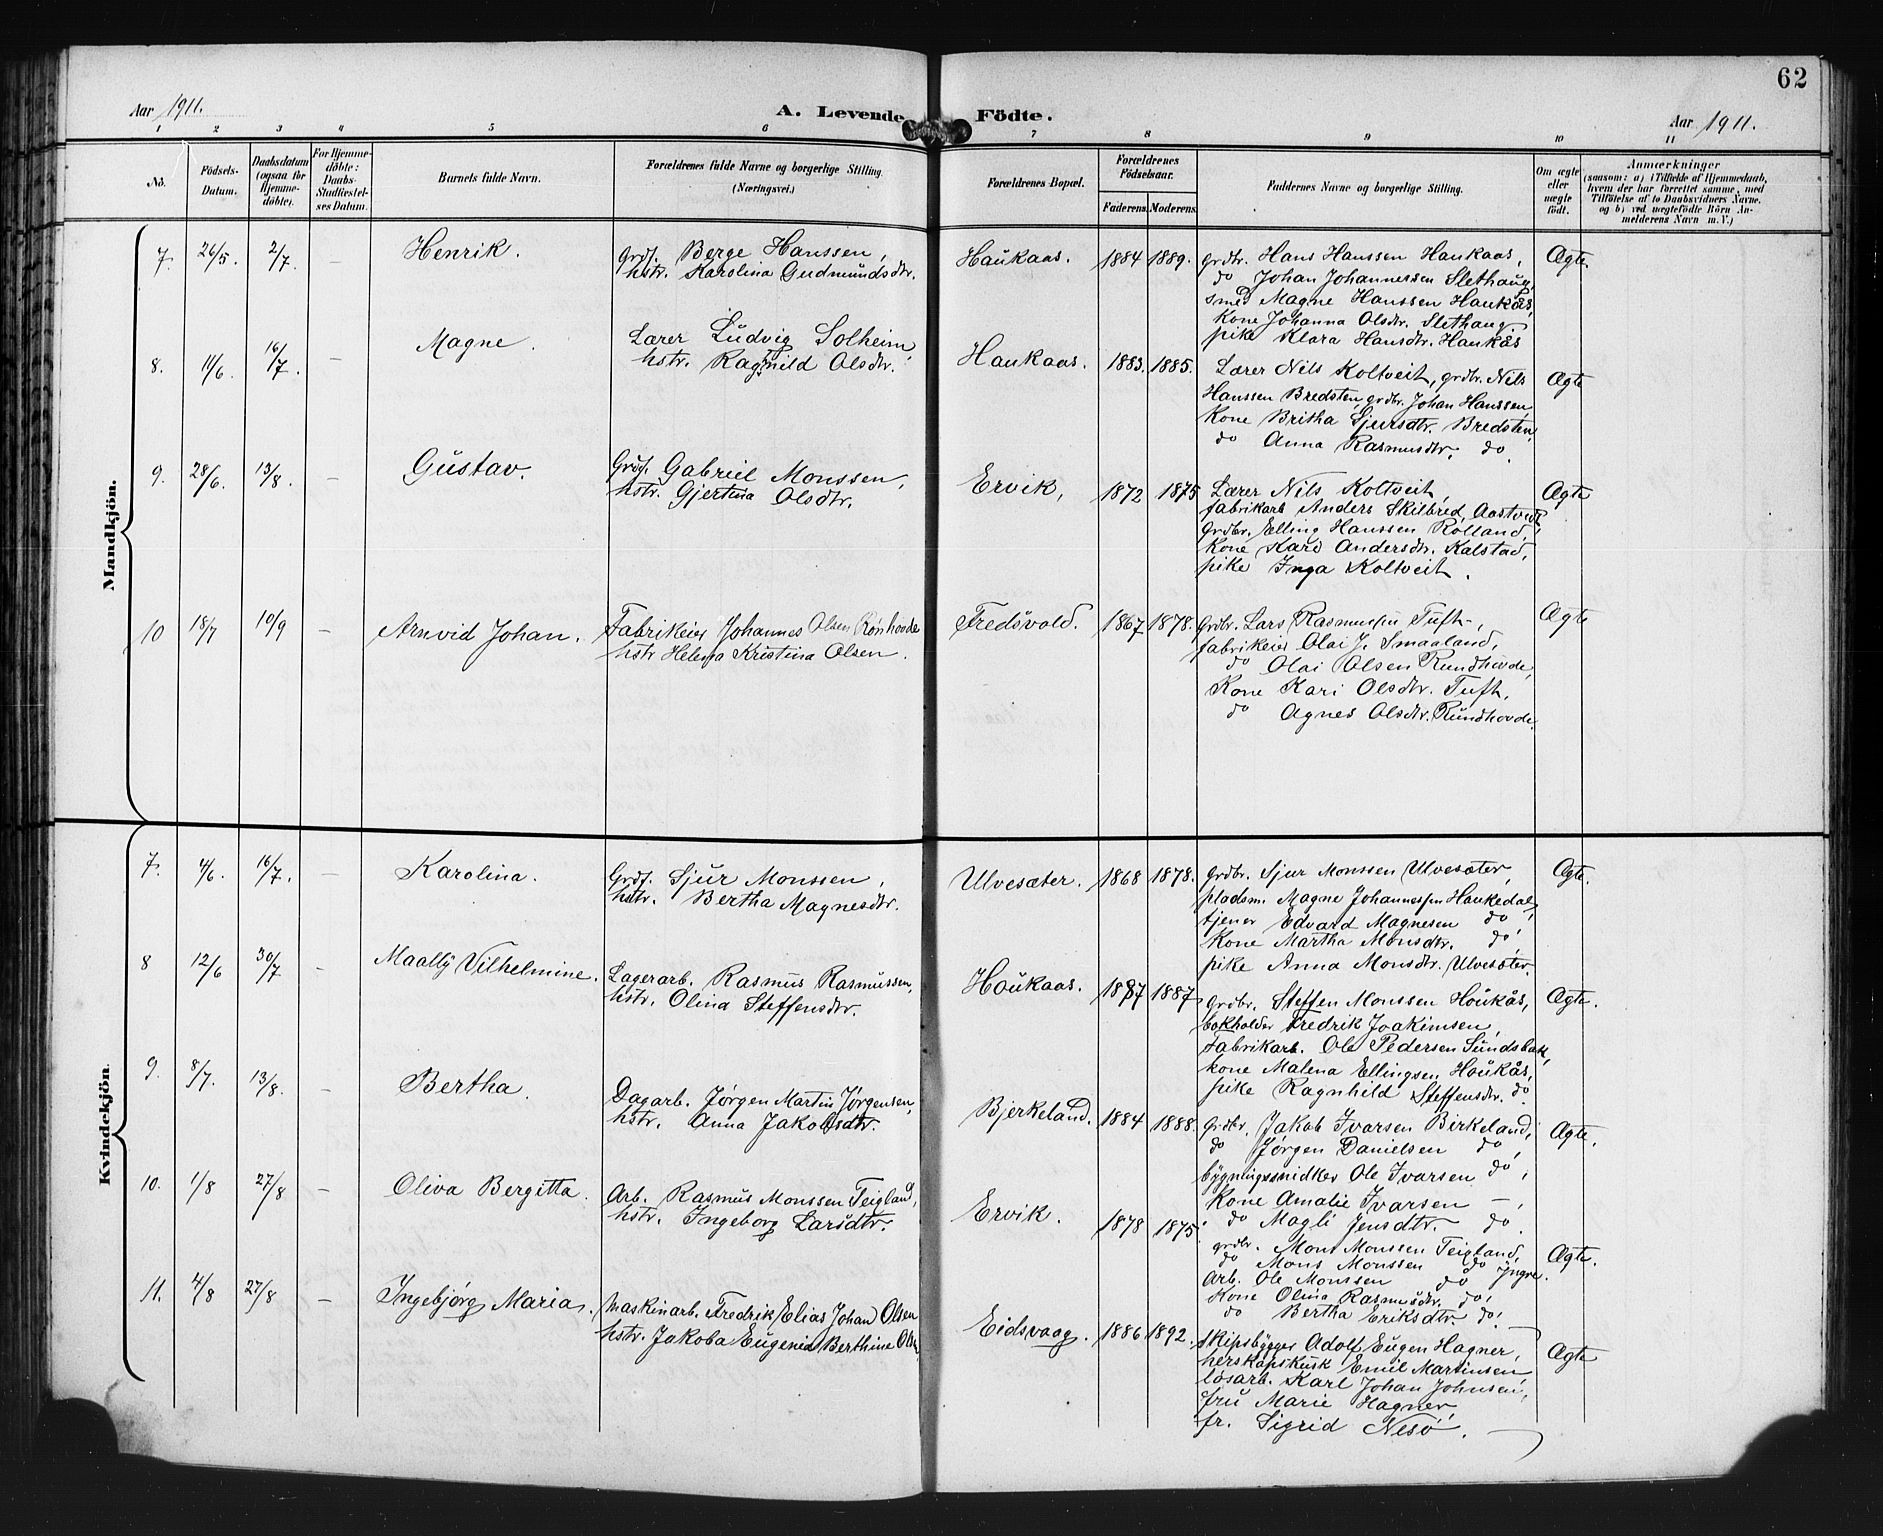 62
Aar 1911.
A. Levende Födte.
Aar 1911.
1 2 3 4 5 6 7 8 9 10 11
No.
Födsels-Datum.
Daabsdatum (ogsaa for Hjemme-döbte).
For Hjemme-döbte: Daabs-Stadfæstel-ses Datum.
Barnets fulde Navn.
Forældrenes fulde Navne og borgerlige Stilling.
(Næringsvei.)
Forældrenes Bopæl.
Forældrenes Födselsaar.
Faderens. Moderens.
Faddernes Navne og borgerlige Stilling.
Om ægte eller uægte født.
Anmærkninger
(saasom: a) i Tilfælde af Hjemmedaab,
hvem der har forrettet samme, med
Tilföielse af to Daabsvidners Navne,
og b) ved uægtefödte Börn An-
melderens Navn m. V.)
Mandkjön.
7. 26/5. 2/7. – Henrik. Grdf. Berge Hanssen,
hstr. Karolina Gudmundsdtr.
Haukaas. 1884 1889.
grdbr. Hans Hanssen Haukaas,
do Johan Johannessen Slethaug,
smed Magne Hanssen Haukås,
Kone Johanna Olsdtr. Slethaug,
pike Klara Hansdtr. Haukås
Ægte.
8. 11/6. 16/7. – Magne. Lærer Ludvig Solheim,
hstr. Ragnhild Olsdtr.
Haukaas. 1883. 1885.
Lærer Nils Koltveit, grdbr. Nils
Hanssen Bredsten, grdbr. Johan Hanssen,
Kone Britha Sjursdtr. Bredsten,
do Anna Rasmusdtr. do.
Ægte
9. 28/6. 13/8. – Gustav. Grdf. Gabriel Monssen,
hstr. Gjertina Olsdtr.
Ervik, 1872 1875
Lærer Nils Koltveit,
fabrikarb Anders Skilbred, Aastvedt,
Grdbr. Elling Hanssen Rolland,
Kone Kari Andersdtr. Kalstad,
pike Inga Koltveit.
Ægte
10 18/7 10/9 – Arnvid Johan. Fabrikeier Johannes Olsen Rönhovde
hstr Helena Kristina Olsen.
Fredsvold. 1867 1878.
Grdbr. Lars Rasmussen Tuft,
fabrikeier Olai J. Smaaland,
do Olai Olsen Rundhovde,
Kone Kari Olsdtr. Tuft,
do Agnes Olsdtr. Rundhovde.
Ægte
Kvindekjön.
7. 4/6. 16/7. – Karolina. Grdf. Sjur Monssen,
hstr. Bertha Magnesdtr.
Ulvesæter. 1868 1878.
grdbr. Sjur Monssen Ulvesæter,
pladsm. Magne Johannessen Haukedal,
tjener Edvard Magnesen do,
Kone Martha Monsdtr. do,
pike Anna Monsdtr. Ulvesæter.
Ægte.
8 12/6 30/7 – Maally Vilhelmine. Lagerarb. Rasmus Rasmussen,
hstr. Olina Steffensdtr.
Houkaas. 1887 1887
Grdbr. Steffen Monssen Houkås,
bokholder Fredrik Joakimsen,
Fabrikarb. Ole Pedersen Sundsbak,
kone Malena Ellingsen Houkås,
pike Ragnhild Steffensdtr. do
Ægte.
9. 8/7. 13/8. – Bertha. Dagarb. Jørgen Martin Jørgensen,
hstr. Anna Jakobsdtr.
Bjerkeland. 1884 1888.
Grdbr. Jakob Ivarsen Birkeland,
do Jørgen Danielsen do,
bygningssnidker Ole Ivarsen do,
Kone Amalie Ivarsen –
do Magli Jensdtr. do.
Ægte.
10. 1/8 27/8 – Oliva Bergitta. Arb. Rasmus Monssen Teigland,
hstr. Ingeborg Larsdtr.
Ervik. 1878 1875
grdbr. Mons Monssen Teigland,
do Mons Monssen do Yngre.
Arb. Ole Monssen do
Kone Olina Rasmusdtr. do,
do Bertha Eriksdtr. do.
Ægte.
11. 4/8 27/8 – Ingebjørg Maria. Maskinarb. Fredrik Elias Johan Olsen
hstr. Jakoba Eugenia Berthine Olsen
Eidsvaag. 1886 1892.
Skipsbygger Adolf Eugen Hagner,
herskapskusk Emil Martinsen,
løsarb. Karl Johan Johnsen,
fru Marie Hagner,
fr. Sigrid Nesö.
Ægte